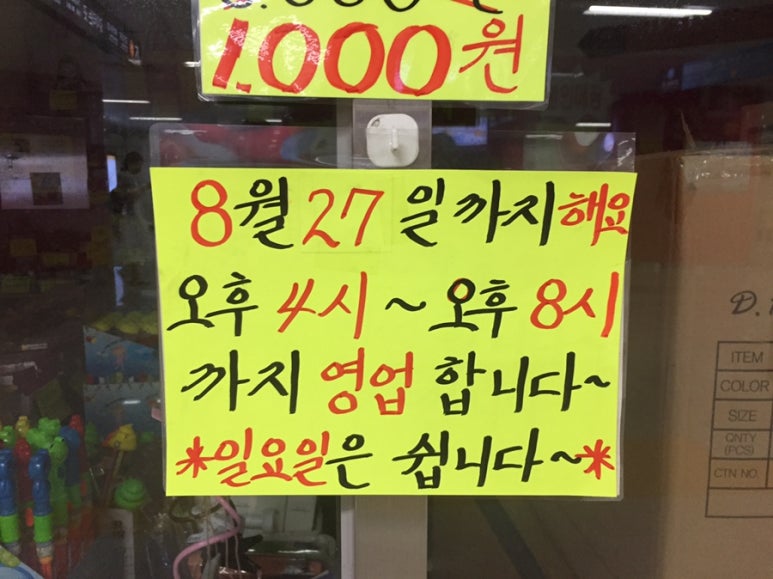 1.000원
8월 27일까지해요
오후 4시 ~ 오후 8시
까지 영업 합니다~
*일요일은 쉽니다~*
D.
ITEM
COLOR
SIZE
QNTY
(PCS)
CTN NO.